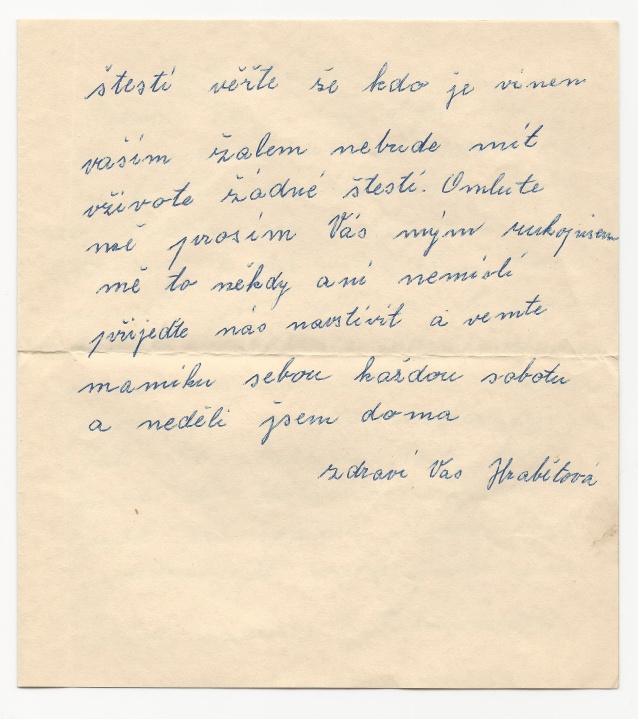 štestí věřte že kdo je vinen
vaším žalem nebude mít
vživote žádné štestí. Omlute
mě prosím Vás mým rukopisem
mě to někdy ani nemislí
přijedte nás navstívit a vemte
mamiku sebou každou sobotu
a neděli jsem doma
zdraví Vas Hrabětová